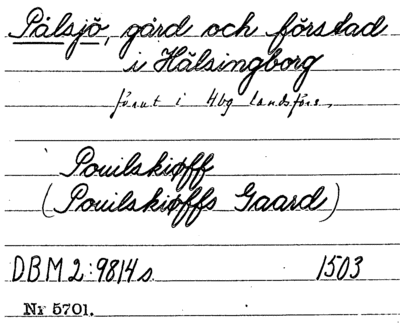 Pålsjö, gård och förstad
i Hälsingborg
förut i Hbg landsförs.
Pouilskiøff
(Pouilskiøffs Gaard)
DBM 2:9814 s 1503
Nr 5701.